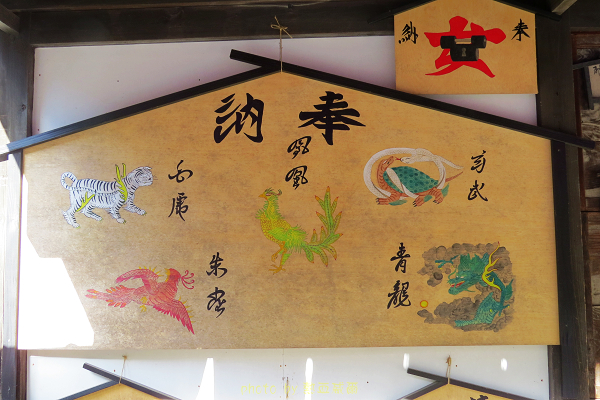 奉納
鳳凰
玄武
白虎
青龍
朱雀
奉
納